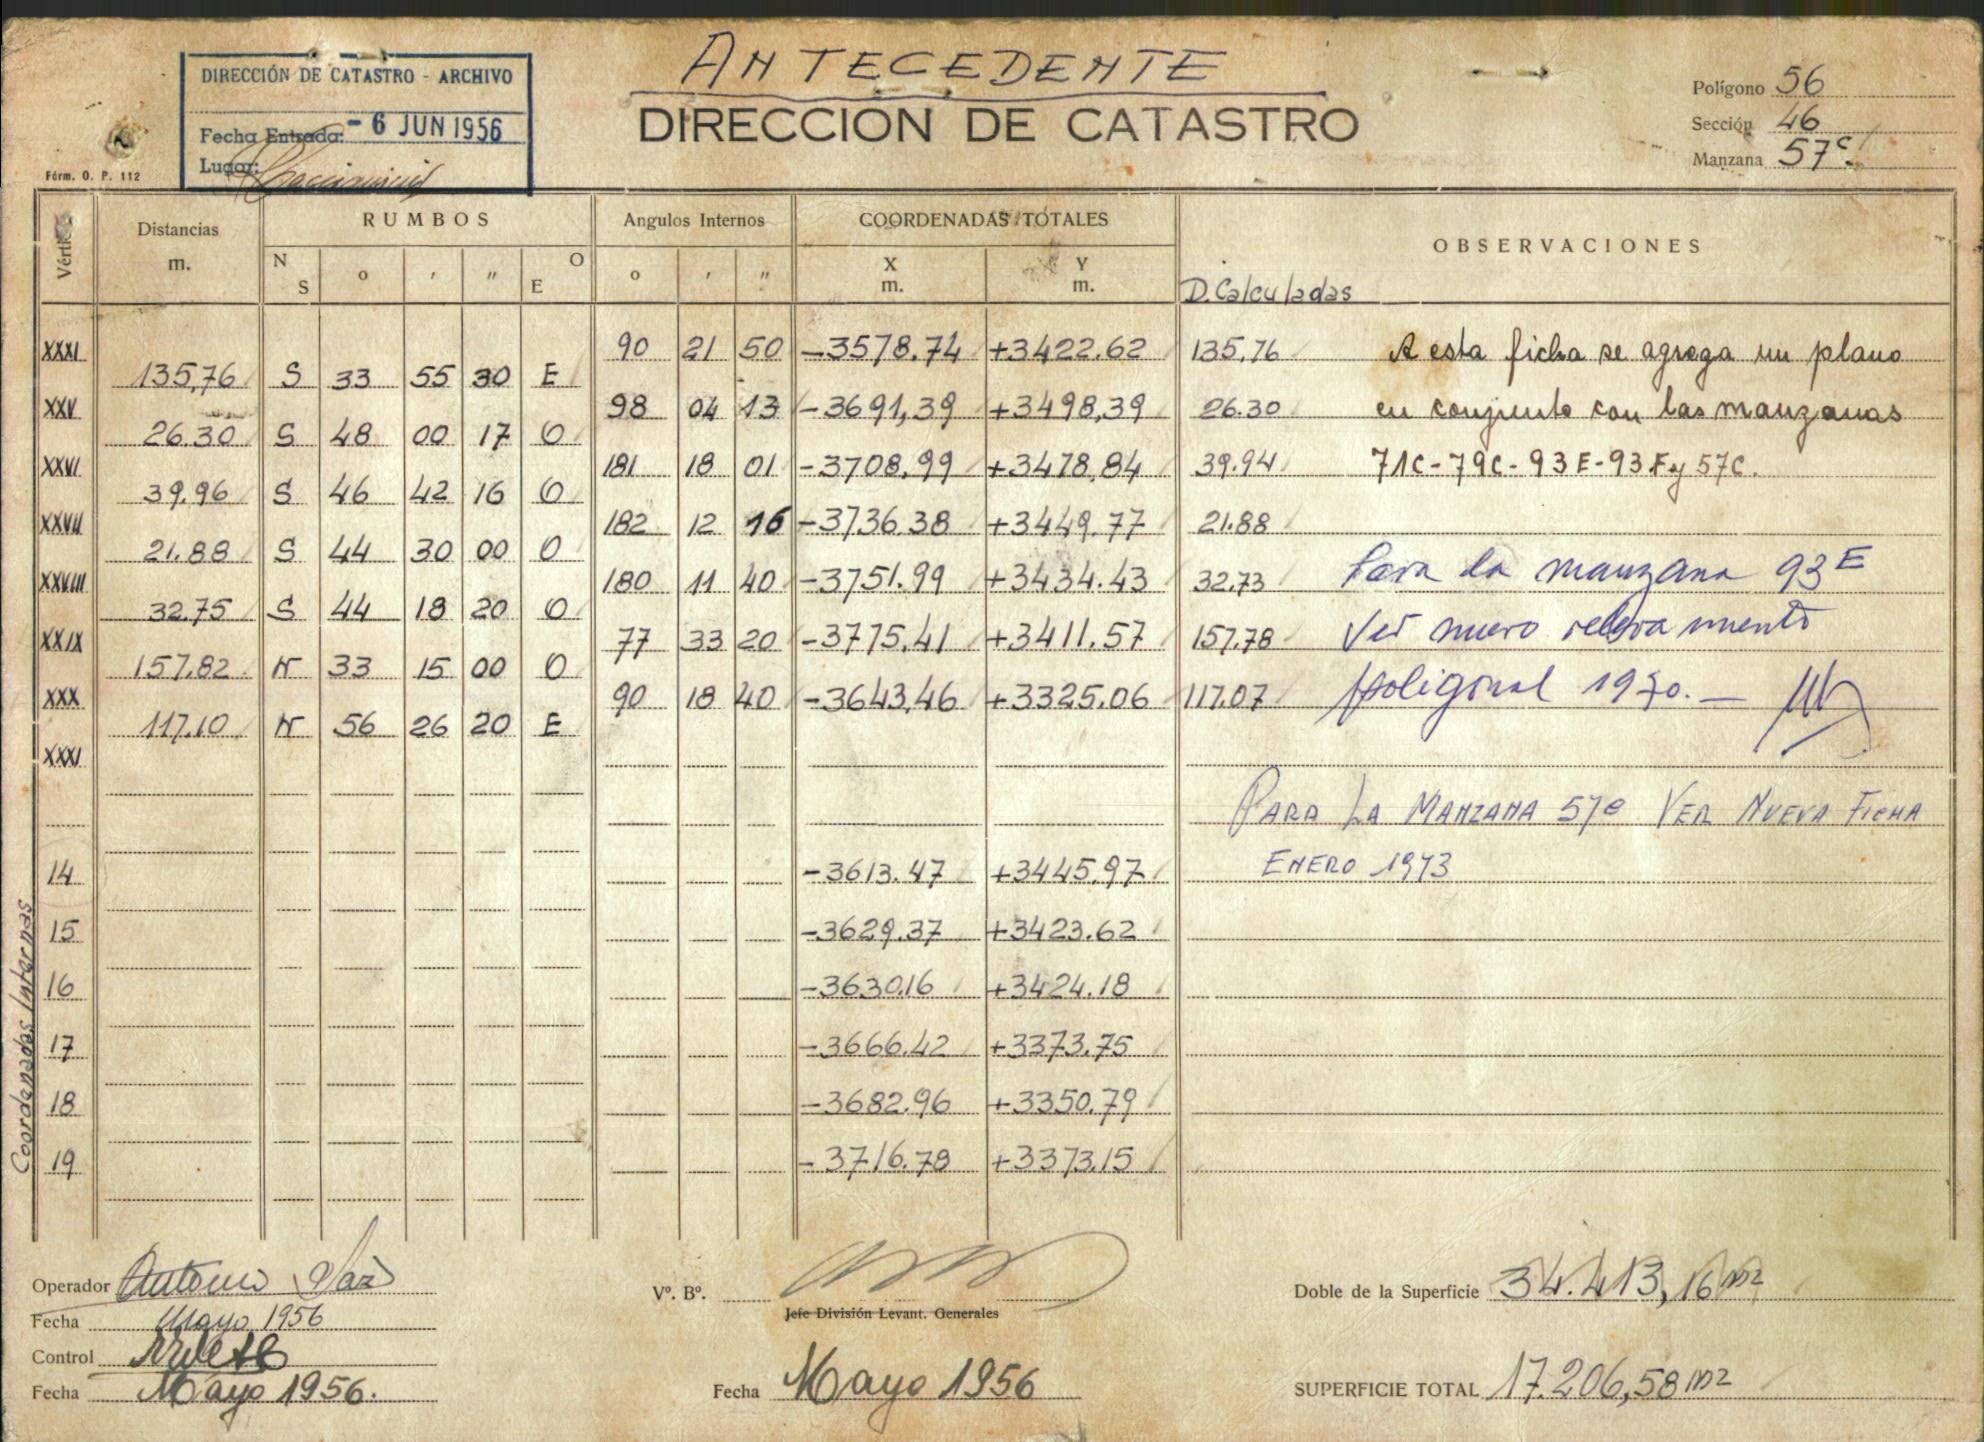 ANTECEDENTE
DIRECCIÓN DE CATASTRO - ARCHIVO
Fecha Entrada: - 6 JUN 1956
Lugar:
DIRECCION DE CATASTRO
Polígono 56
Sección 46
Manzana 57c.
Fórm. O. P. 112
Vértic Distancias m. RUMBOS Angulos Internos COORDENADAS TOTALES OBSERVACIONES
N S o ' " O E o ' " X m. Y m. D. Calculadas
XXXI 90 21 50 -3578.74 +3422.62 135,76 A esta ficha se agrega un plano
135,76 S 33 55 30 E
XXV 98 04 13 -3691,39 +3498,39 26.30 en conjunto con las manzanas
26.30 S 48 00 17 O
XXVI 181 18 01 -3708,99 +3478,84 39.94 71C-79C-93E-93F y 57C.
39,96 S 46 42 16 O
XXVII 182 12 16 -3736.38 +3449.77 21.88
21.88 S 44 30 00 O
XXVIII 180 11 40 -3751.99 +3434.43 32,73 Para la manzana 93E
32.75 S 44 18 20 O
XXIX 77 33 20 -3775,41 +3411.57 157.78 Ver nuevo relevamiento
157.82 N 33 15 00 O
XXX 90 18 40 -3643,46 +3325.06 117.07 poligonal 1970.-
117.10 N 56 26 20 E
XXXI
PARA LA MANZANA 57c VER NUEVA FICHA
14 -3613.47 +3445.97 ENERO 1973
15 -3629.37 +3423.62
16 -3630.16 +3424.18
17 -3666.42 +3373.75
18 -3682.96 +3350.79
19 -3716.78 +3373.15
Coordenadas Internas
Operador Antonio
Fecha Mayo 1956
Control
Fecha Mayo 1956.
Vº. Bº.
Jefe División Levant. Generales
Fecha Mayo 1956
Doble de la Superficie 34.413,16 m2
SUPERFICIE TOTAL 17.206,58 m2